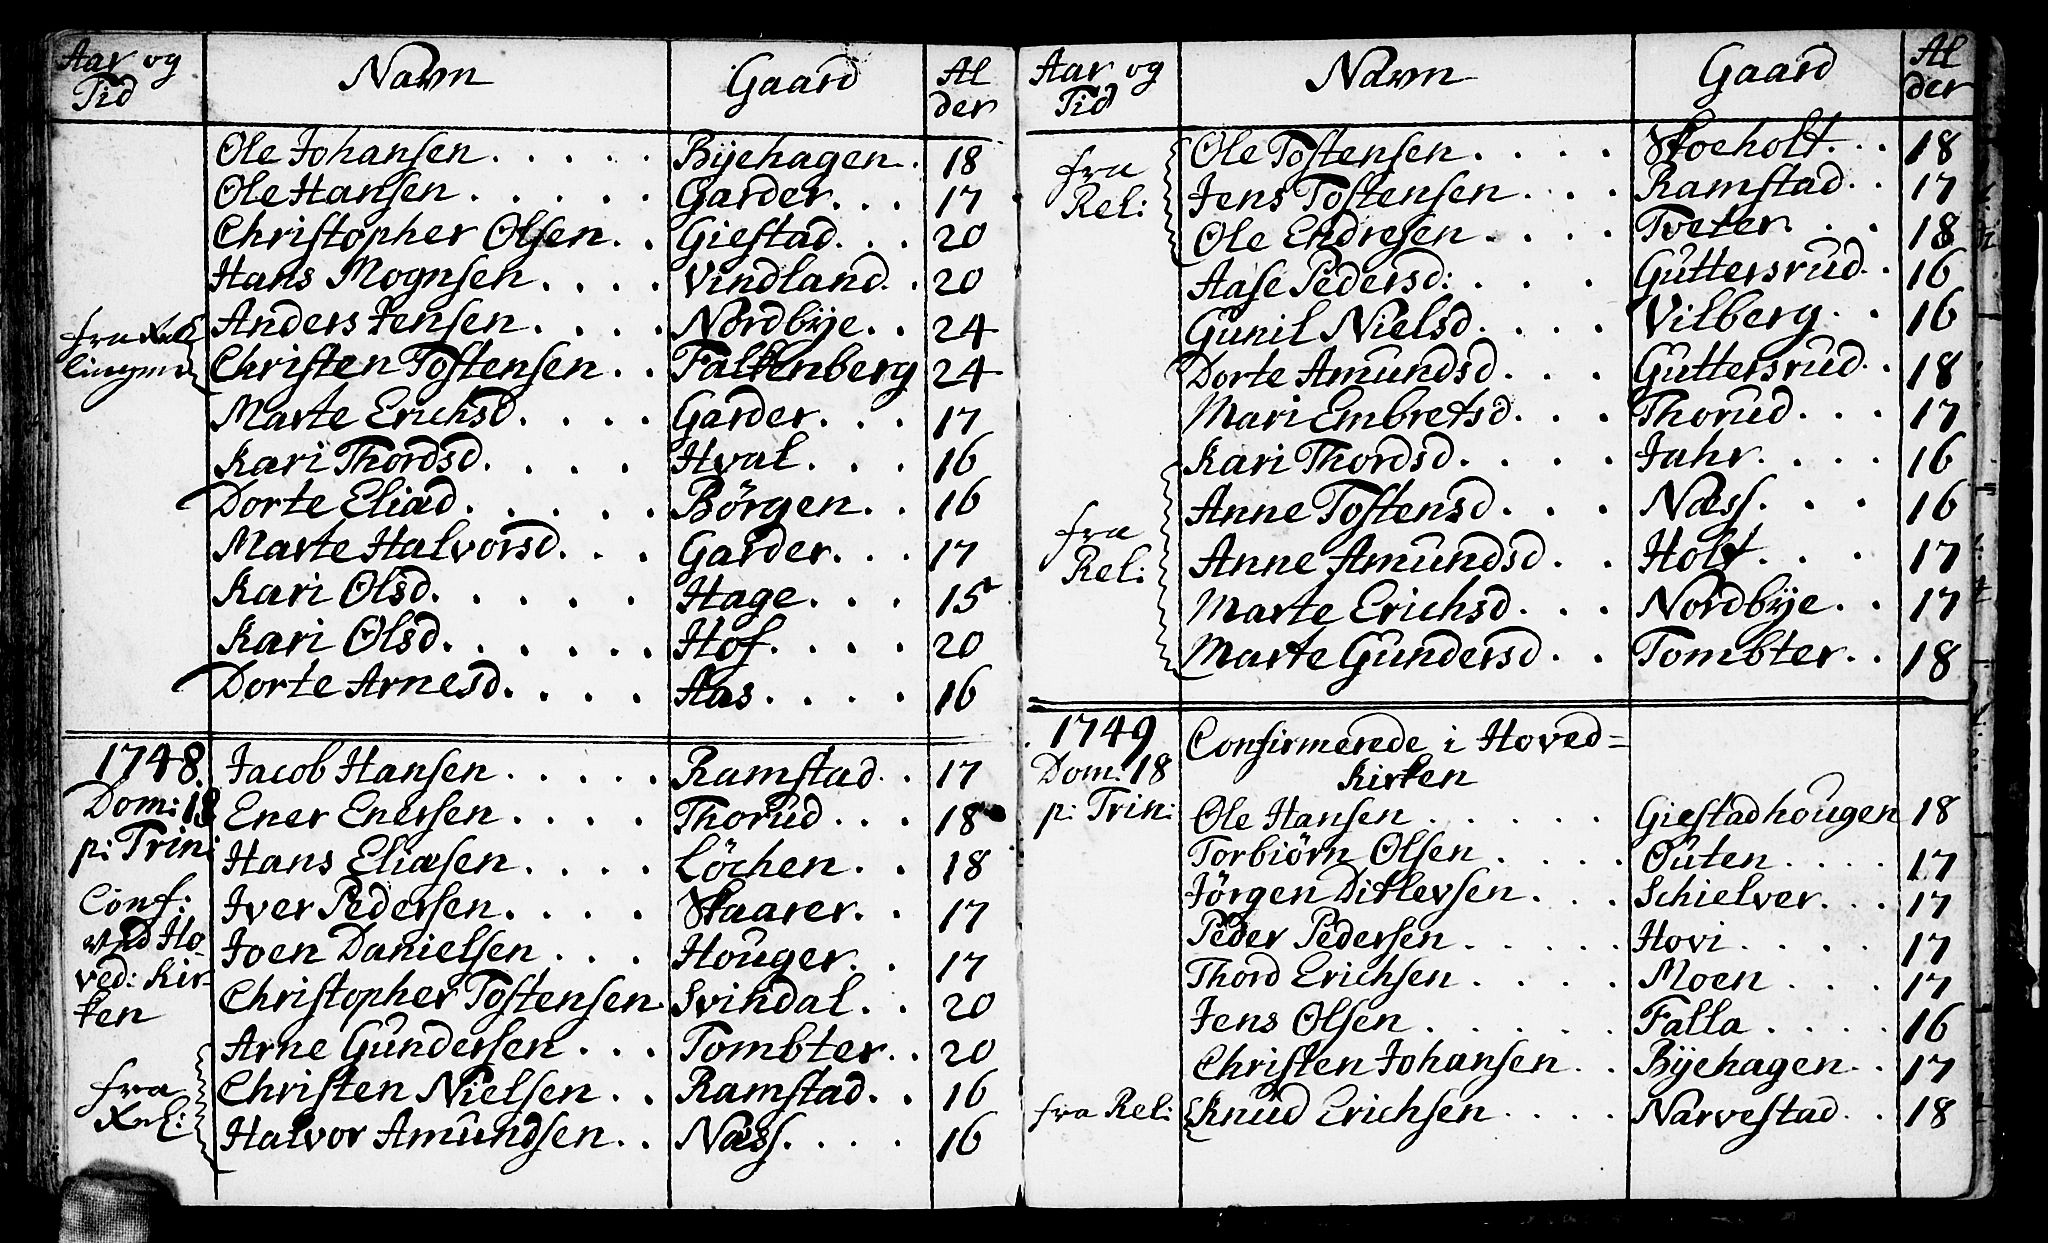 Aar og Tid Navn Gaard Al der
Ole Johansen. . . . . Byehagen. 18
Ole Hansen. . . . . Garder. . . 17
Christopher Olsen. . Giestad. . . 20
Hans Mognsen. . . . Vindland. . 20
Anders Jensen. . . . Nordbye. . 24
fra Rel
lingen Christen Tostensen. . Falkenberg 24
Marte Erichsd. . . . Garder. . . 17
Kari Thordsd. . . . Hval. . . 16
Dorte Eliæd. . . . . Börgen. . 16
Marte Halvorsd. . . Garder. . . 17
Kari Olsd. . . . . Hage. . . 15
Kari Olsd. . . . . . Hof. . . . 20
Dorte Arnesd. . . . Aas. . . . 16
1748. Jacob Hansen. . . . . Ramstad. . 17
Dom: 18 Ener Enersen. . . . Thorud. . . 18
p: Trin: Hans Eliæsen. . . . Löchen. . 18
Conf: Iver Pedersen. . . . Skaarer. . 17
ved Ho Joen Danielsen. . . Houger. . 17
ved: Kir-
ken Christopher Tostensen. Svindal. . 20
Arne Gundersen. . . Tombter. . 20
fra Christen Nielsen. . Ramstad. . 16
Rel: Halvor Amundsen. . Næss. . . . 16
Aar og Tid Navn Gaard Al der
fra Ole Tostensen. . . . Skoeholt. . . 18
Rel: Jens Tostensen. . . Ramstad. . 17
Ole Endresen. . . . Tveter. . . 18
Aase Pedersd: . . . Guttersrud. . 16
Gunil Nielsd. . . . Vilberg. . 16
Dorte Amundsd. . . Guttersrud. . 18
Mari Embretsd. . . Thorud. . . 17
Kari Thordsd. . . . Jahr. . . . 16
fra Anne Tostensd. . . Næss. . . 16
Rel: Anne Amundsd. . Holt. . . 17
Marte Erichsd. . . Nordbye. . 17
Marte Gundersd. . Tombter. . 18
1749 Confirmerede i Hoved=
Dom: 18 Kirken
p: Trin: Ole Hansen. . . . . Giestadhougen 18
Torbiörn Olsen. . . . Outen. . . . 17
Jörgen Ditlevsen. . . Schielver. . . 17
Peder Pedersen. . . . . Hovi. . . . 17
Thord Erichsen. . . . Moen. . . . 17
Jens Olsen. . . . . Falla. . . . 16
Christen Johansen. . Byehagen. . 17
fra Rel: Knud Erichsen. . . . Narvestad. . 18